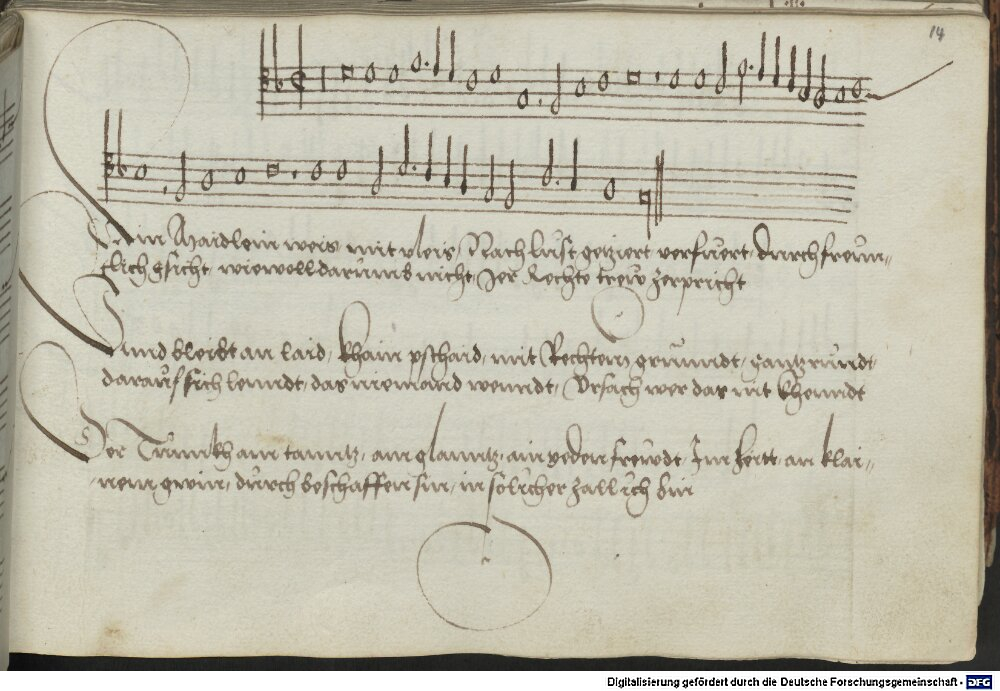 14
Ein Maidlein weis mit vleis, Nach lust geziert verfuert, durch freun-
tlich gsicht, wiewoll darumb nicht, Jer Rechte trew zerpricht
Sunnd bleibt an laid, khain pschaid, mit Rechtem grunndt, gantz rundt,
darauf sich lenndt, das niemand wenndt, Vrsach wer das nit khenndt
Der Trunkh am tanntz, am glanntz, ain yeden frewdt, Im hertz, an klai-
nem gwin, durch beschaffen sin, in solicher zall ich bin
Digitalisierung gefördert durch die Deutsche Forschungsgemeinschaft - DFG